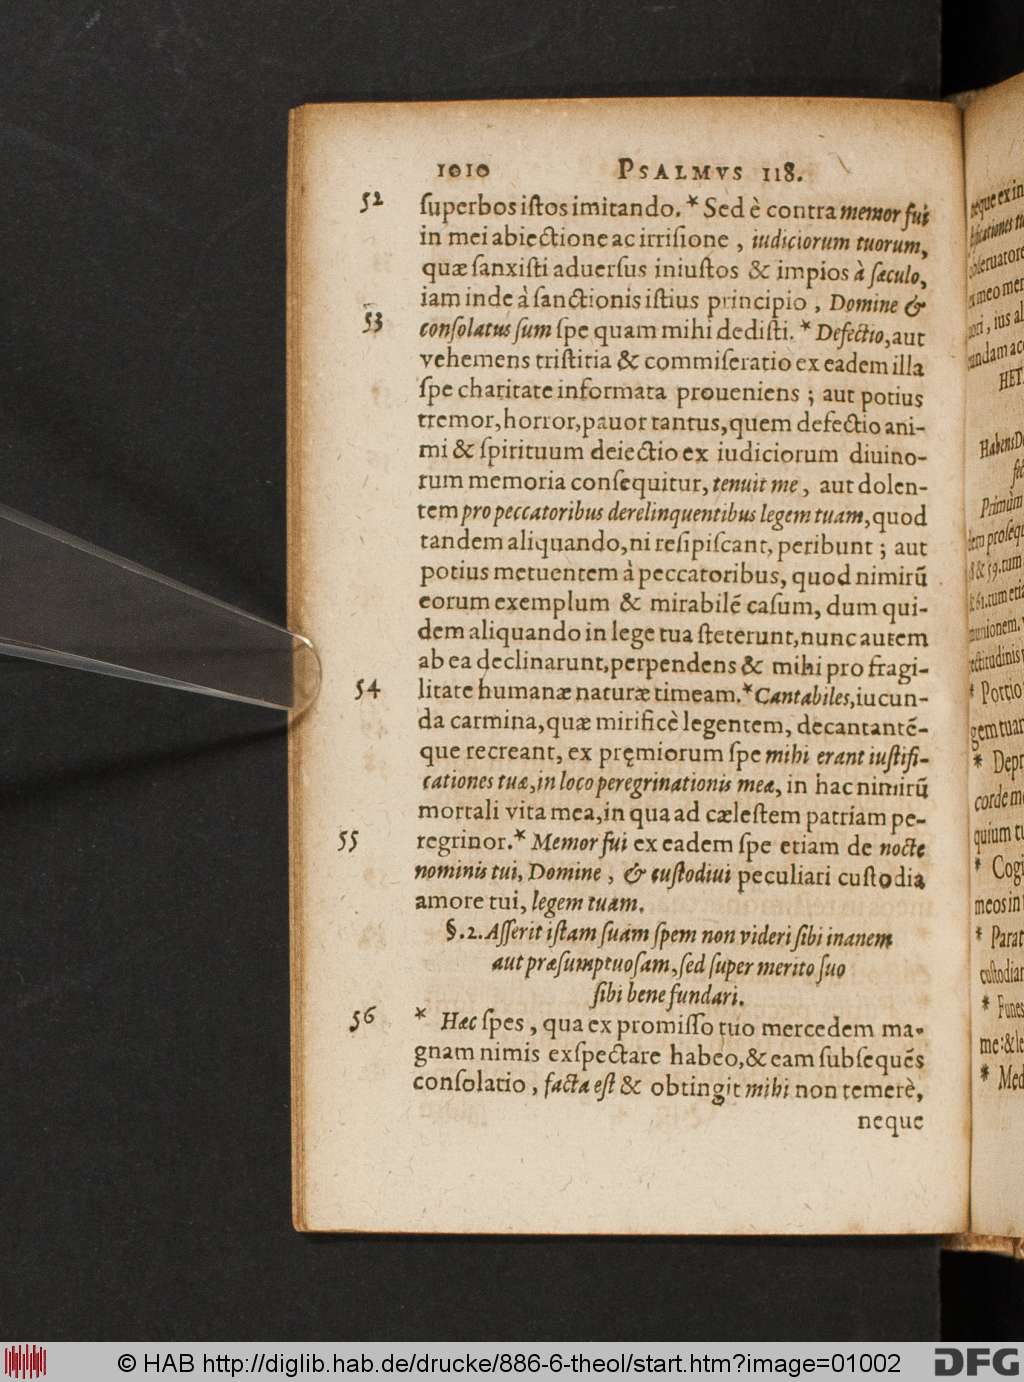 1010 PSALMVS 118.
52 ſuperbos iſtos imitando. * Sed è contra memor fui
in mei abiectione ac irriſione , iudiciorum tuorum,
quæ ſanxiſti aduerſus iniuſtos & impios à ſæculo,
iam inde à ſanctionis iſtius principio , Domine &
53 conſolatus ſum ſpe quam mihi dediſti. * Defectio, aut
vehemens triſtitia & commiſeratio ex eadem illa
ſpe charitate informata proueniens ; aut potius
tremor, horror, pauor tantus, quem defectio ani-
mi & ſpirituum deiectio ex iudiciorum diuino-
rum memoria conſequitur, tenuit me , aut dolen-
tem pro peccatoribus derelinquentibus legem tuam, quod
tandem aliquando, ni reſipiſcant, peribunt ; aut
potius metuentem à peccatoribus, quod nimirũ
eorum exemplum & mirabilẽ caſum, dum qui-
dem aliquando in lege tua ſteterunt, nunc autem
ab ea declinarunt, perpendens & mihi pro fragi-
54 litate humanæ naturæ timeam. * Cantabiles, iucun-
da carmina, quæ mirificè legentem, decantantẽ-
que recreant, ex pręmiorum ſpe mihi erant iuſtifi-
cationes tuæ, in loco peregrinationis meæ, in hac nimirũ
mortali vita mea, in qua ad cæleſtem patriam pe-
55 regrinor. * Memor fui ex eadem ſpe etiam de nocte
nominis tui, Domine , & cuſtodiui peculiari cuſtodia
amore tui, legem tuam.
§. 2. Aſſerit iſtam ſuam ſpem non videri ſibi inanem
aut præſumptuoſam, ſed ſuper merito ſuo
ſibi bene fundari.
56 * Hæc ſpes , qua ex promiſſo tuo mercedem ma-
gnam nimis exſpectare habeo, & eam ſubſequẽs
conſolatio , facta eſt & obtingit mihi non temerè,
neque
neque ex in
obſeruatore
ex meo mer
HET.
Habens D
Primùm
dem proſequ
8 & 59. tum
& 61. tum etia
* Portio
gem tuam
* Depr
corde me
quium tu
* Cogi
meos in
* Parat
cuſtodiam
* Funes
me: & le
* Med
© HAB http://diglib.hab.de/drucke/886-6-theol/start.htm?image=01002 DFG